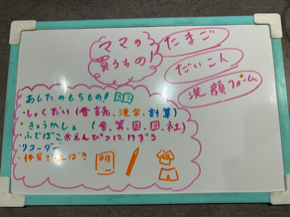 ママの
買うもの!
たまご
だいこん
洗顔フォーム
あしたのもちもの!
・しゅくだい(音読、漢字、計算)
・きょうかしょ(音、算、国、図、社)
・ふでばこ ※えんぴつけずる
・リコーダー
・体育